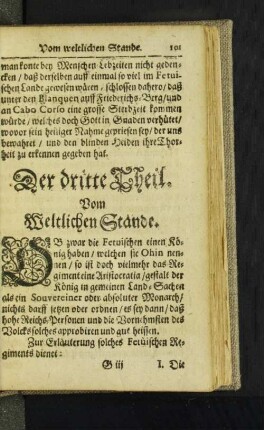 Vom weltlichen Stande. 101
man konte bey Menschen Lebzeiten nicht geden-
cken / daß derselben auff einmal so viel im Fetui-
schen Lande gewesen wären / schlossen dahero / daß
unter den Blanquen auff Friederichs-Berg / und
an Cabo Corso eine grosse Sterbzeit kommen
würde / welches doch Gott in Gnaden verhütet /
wovor sein heiliger Nahme gepriesen sey / der uns
bewahret / und den blinden Heiden ihre Thor-
heit zu erkennen gegeben hat.
Der dritte Theil.
Vom
Weltlichen Stande.
OB zwar die Fetuischen einen Kö-
nig haben / welchen sie Ohin nen-
nen / so ist doch vielmehr das Re-
giment eine Aristocratia / gestalt der
König in gemeinen Land-Sachen
als ein Souverainer oder absoluter Monarch /
nichts darff setzen oder ordnen / es sey dann / daß
hohe Reichs-Personen und die Vornehmsten des
Volcks solches approbiren und gut heissen.
Zur Erläuterung solches Fetuischen Re-
giments dienet:
G iij I. Die